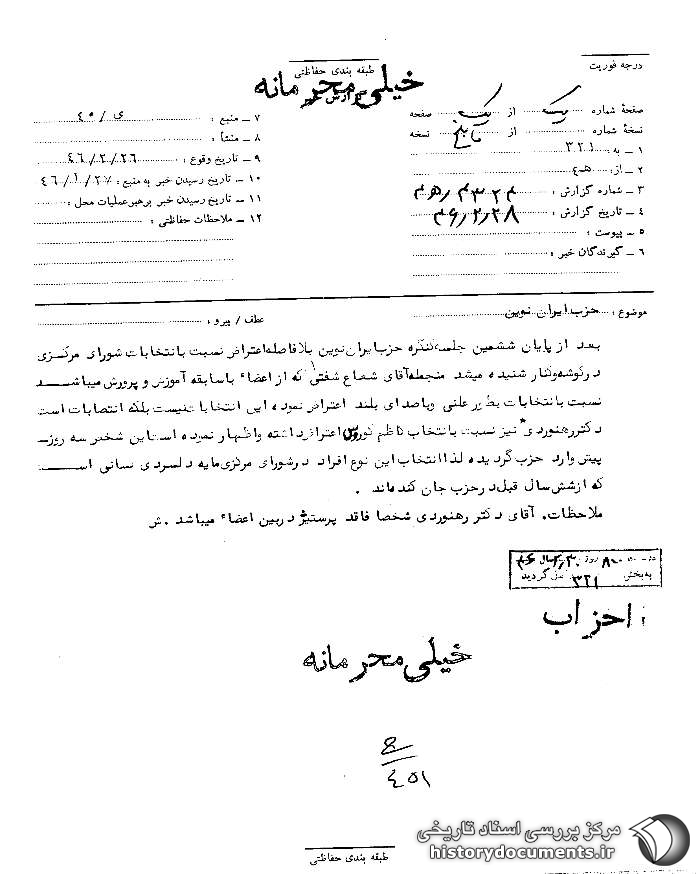 درجه فوریت
طبقه بندی حفاظتی
خیلی محرمانه
گزارش خبر
صفحهٔ شماره یک از یک صفحه
نسخهٔ شماره از پنج نسخه
۱ – به : ۳۲۱
۲ – از : هـ ٤
۳ – شماره گزارش :
۴ – تاریخ گزارش : ۴۶/۲/۲۸
۵ – پیوست :
۶ – گیرندگان خبر :
۷ – منبع :
۸ – منشأ :
۹ – تاریخ وقوع : ۴۶/۲/۲۶
۱۰ – تاریخ رسیدن خبر به منبع : ۴۶/۱/۲۷
۱۱ – تاریخ رسیدن خبر برهبر عملیات محل :
۱۲ – ملاحظات حفاظتی :
موضوع : حزب ایران نوین
عطف / پیرو :
بعد از پایان ششمین جلسه کنگره حزب ایران نوین بلافاصله اعتراض نسبت با نتخابات شورای مرکزی
در گوشه و کنار شنیده میشد منجمله آقای شعاع شفتی که از اعضاء با سابقه آموزش و پرورش میباشد
نسبت با نتخابات بطور علنی و با صدای بلند اعتراض نموده این انتخابات نیست بلکه انتصابات است
دکتر رهنوردی نیز نسبت با نتخاب کاظم کوروس اعتراض داشته و اظهار نموده است این شخص سه روز
پیش وارد حزب گردیده لذا انتخاب این نوع افراد در شورای مرکزی مایه دلسردی کسانی است
که از شش سال قبل در حزب جان کنده اند .
ملاحظات. آقای دکتر رهنوردی شخصا فاقد پرستیژ در بین اعضاء میباشد . ش
به بخش ۳۲۱
احزاب
خیلی محرمانه
٤٥١
طبقه بندی حفاظتی
مرکز بررسی اسناد تاریخی
historydocuments.ir